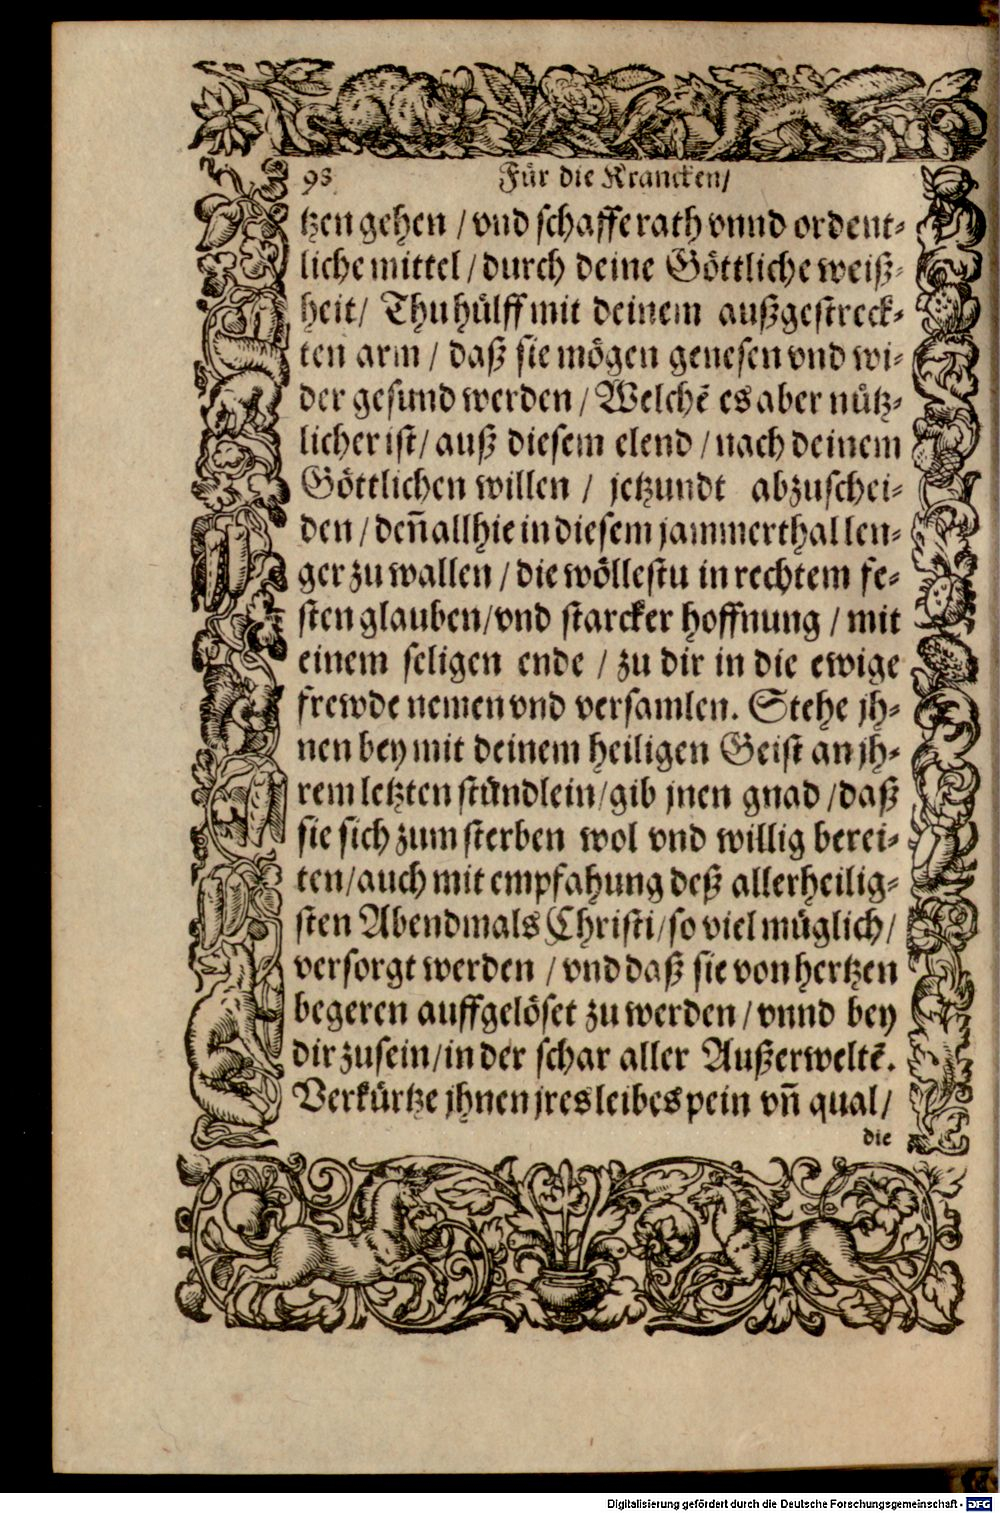 98 Für die Krancken/
tzen gehen / vnd schaffe rath vnnd ordent-
liche mittel / durch deine Göttliche weiß-
heit / Thu hülff mit deinem außgestreck-
ten arm / daß sie mögen genesen vnd wi-
der gesund werden / Welchē es aber nütz-
licher ist / auß diesem elend / nach deinem
Göttlichen willen / jetzundt abzuschei-
den / deñ allhie in diesem jammerthal len-
ger zu wallen / die wöllestu in rechtem fe-
sten glauben / vnd starcker hoffnung / mit
einem seligen ende / zu dir in die ewige
frewde nemen vnd versamlen. Stehe jh-
nen bey mit deinem heiligen Geist an jh-
rem letzten stündlein / gib jnen gnad / daß
sie sich zum sterben wol vnd willig berei-
ten / auch mit empfahung deß allerheilig-
sten Abendmals Christi / so viel müglich /
versorgt werden / vnd daß sie von hertzen
begeren auffgelöset zu werden / vnnd bey
dir zu sein / in der schar aller Außerweltē.
Verkürtze jhnen jres leibes pein vñ qual /
die
Digitalisierung gefördert durch die Deutsche Forschungsgemeinschaft - DFG